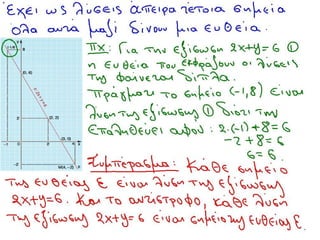 Έχει ως λύσεις άπειρα τέτοια σημεία
όλα αυτά μαζί δίνουν μια ευθεία.
πχ: Για την εξίσωση 2x+y=6 ①
η ευθεία που εκφράζουν οι λύσεις
της φαίνεται δίπλα.
Πράγματι το σημείο (-1,8) είναι
λύση της εξίσωσης ① διότι την
επαληθεύει αφού: 2·(-1)+8=6
-2+8=6
6=6.
Συμπέρασμα: Κάθε σημείο
της ευθείας ε είναι λύση της εξίσωσης
2x+y=6. Και το αντίστροφο, κάθε λύση
της εξίσωσης 2x+y=6 είναι σημείο της ευθείας ε.